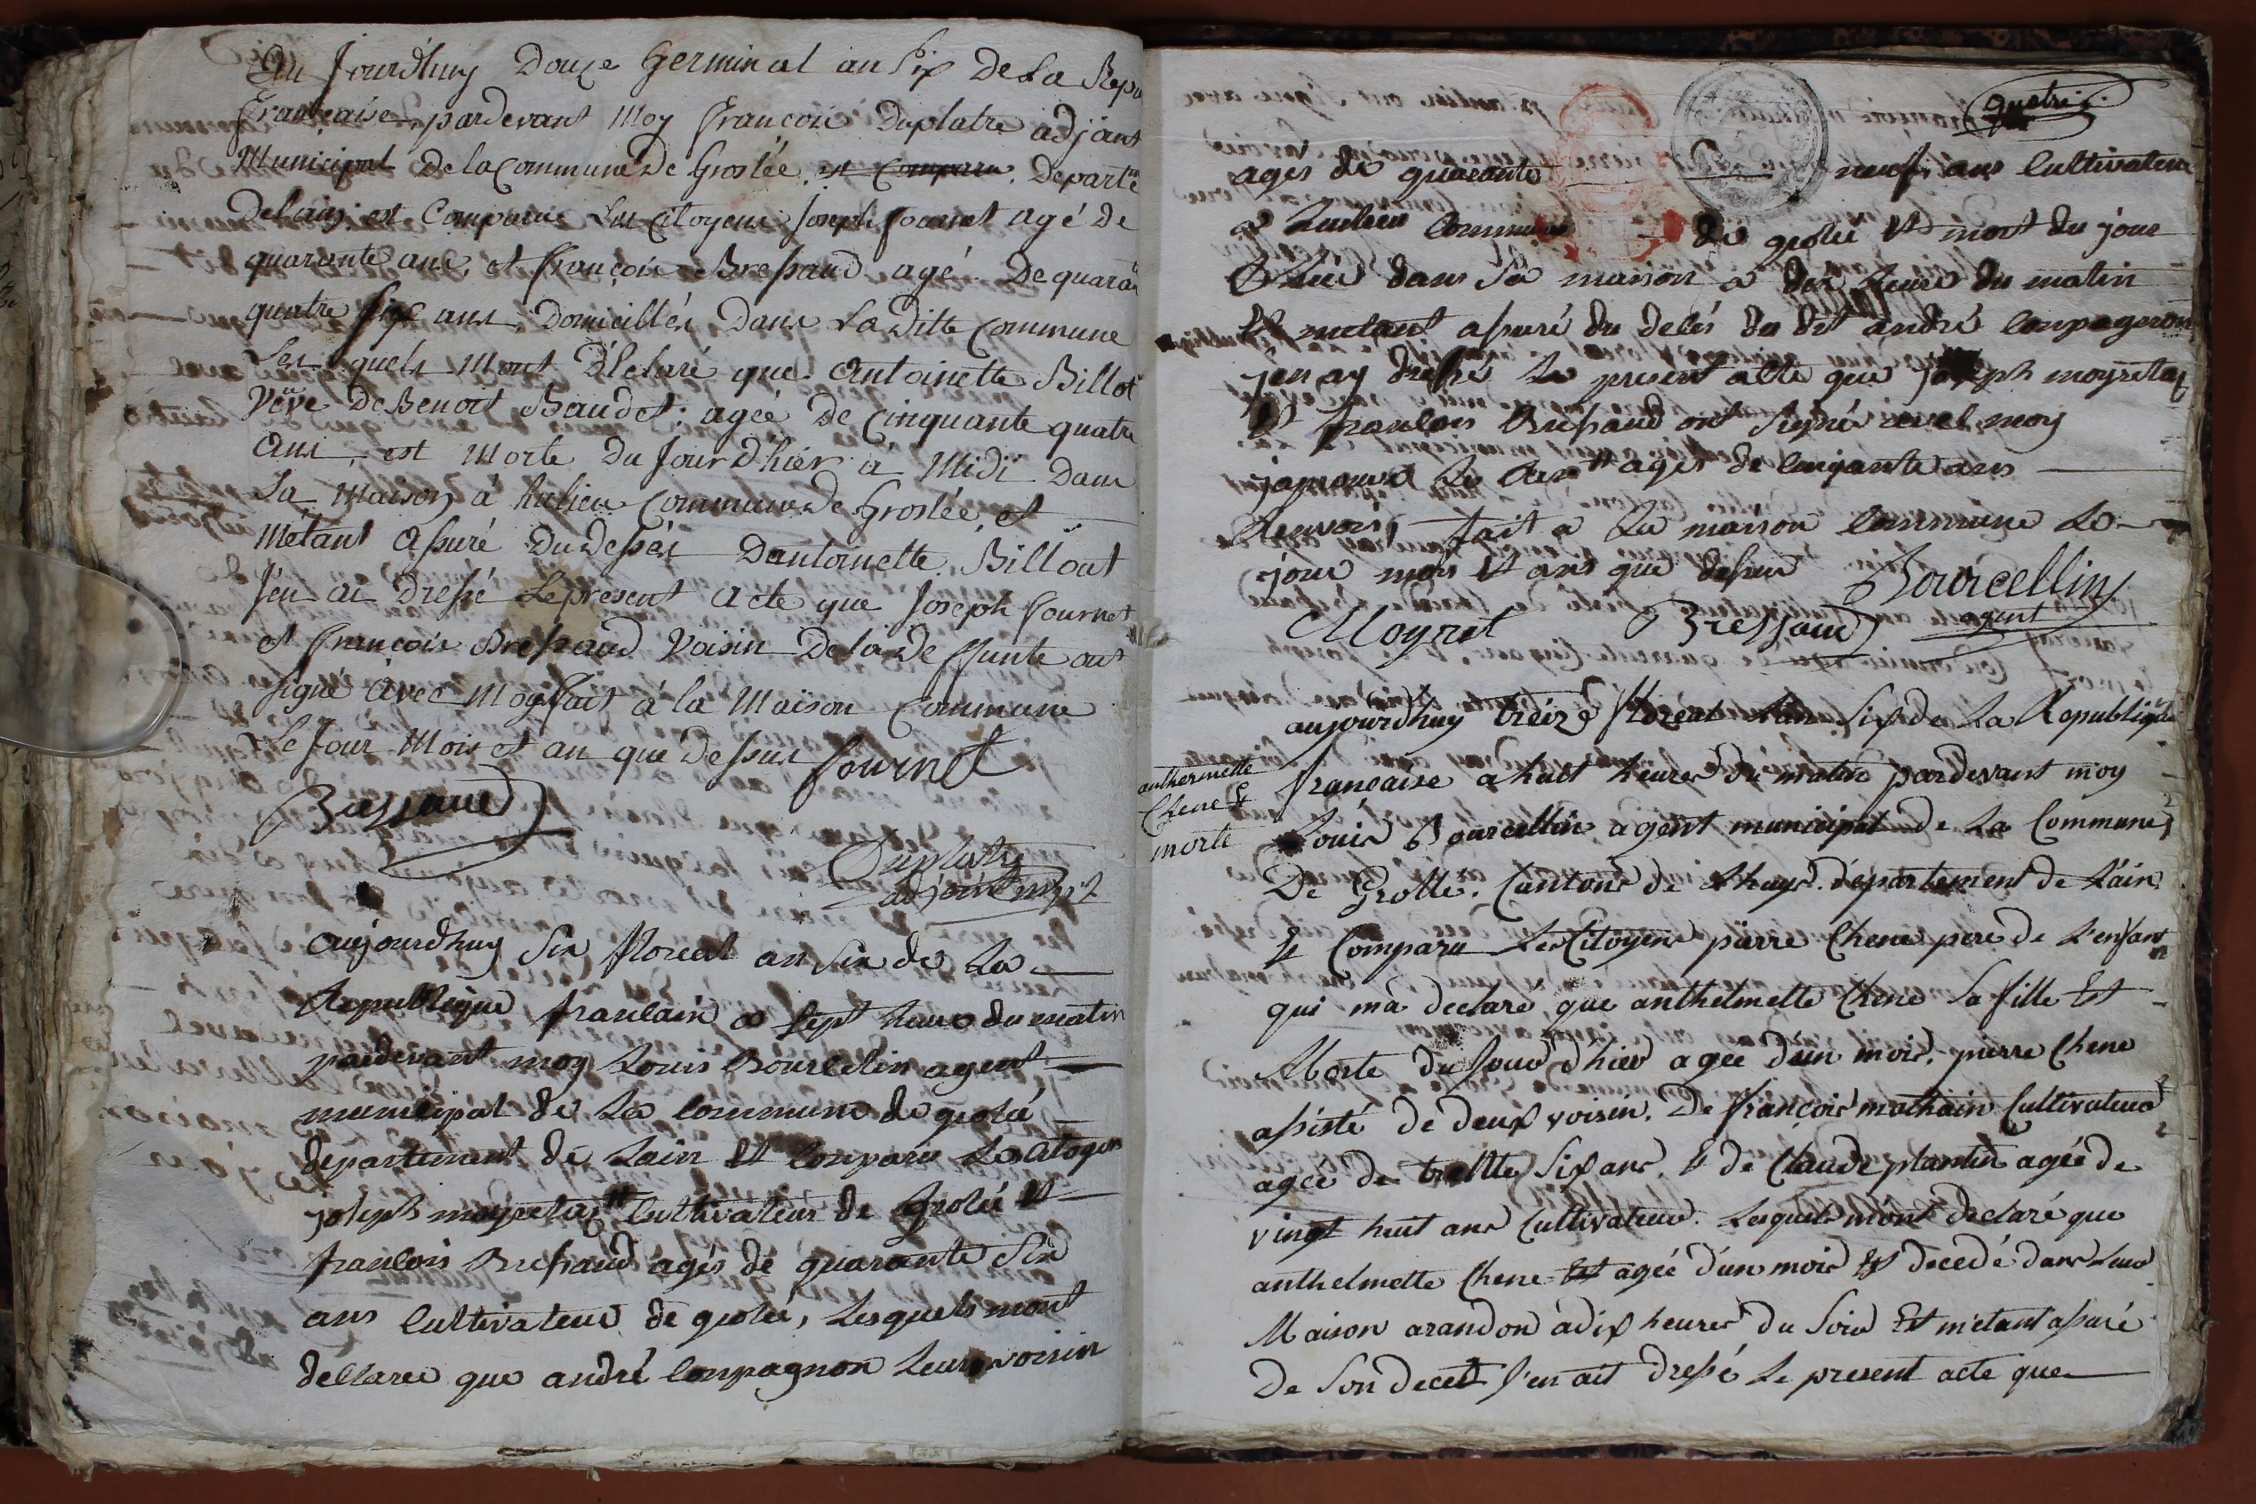 Au Jourdhuy Douze Germinal an Six De La Repu
francaise pardevant Moy francois Duplatre adjoint
Municipal De la Commune De Groslée, est Comparu, Departe
Delain; est Comparue Les Citoyens Joseph fournet agé de
quarante ans, et françois Bressaud agé De quarante
quatre Six ans Domicilles Dans La Ditte Commune
Les quels Mont Déclaré que Antoinette Billot
Veuve De Benoit Baudet: agée De Cinquante quatre
ans, est Morte Du Jour Dhier à Midi Dans
Sa Maison à Commune De Groslée, et
Métant assuré Du Desses Dantoinette Billout
J'en ai Dressé Le present acte que Joseph fournet
et françois Bressaud Voisin De la De ffunte ont
signé Avec Moy fait à la Maison Commune
Le Jour Mois et an que Dessus fournet
Bressaud
Duplatre
adjoint
aujourdhuy Six floreal an Six de La
Republique franlain a Sept heure du matin
pardevant moy Louis Bourcelin agent
municipal de La Commune de grolée
departement de Lain Et Conparu Le Citoyen
joseph cultivateur de Grolée Et
franlois Bressaud agés de quarante Six
ans Cultivateur de grolée, Lesquels mont
dellaree que andré Conpagnon Leur voisin
quatre
ages de quarante neuf ans Cultivateur
a Commune de grolée Et mort du jour
dhier dans Sa maison a dix heure du matin
Et metant assuré du decés du dit andré Conpagnon
jen ay dressé Le present alte que joseph
Et franlois Bressaud ont Signé avel moy
ages de ans
Renvois fait a La maison Commune Le
jour mois Et ans que dessus Bourcellin
Moyret Bressaud agent
aujourdhuy treize floreal Lan Six de La Republique
anthermette
Chene
morte
francaise a huit heures du matin pardevant moy
Louis Bourcellin agent municipal de La Commune
De Grolle. Cantons de Lhuys. département de Lain
Est Comparu Les Citoyens pierre Chene pere de L'enfant
qui ma declare que anthelmette Chene Sa fille Est
Morte du Jour dhier agee dun mois. pierre Chene
assisté de deux voisin, De françois mathain Cultivateur
agée de trentte Six ans, & de Claude plantin agée de
vingt huit ans Cultivateur. Lesquels mont declaré que
anthelmette Chene Est agée d'un mois Est decedé dans Leur
Maison arandon à dix heures du Soir Et metant assuré
De Son deced J'en ait dressé Le present acte que